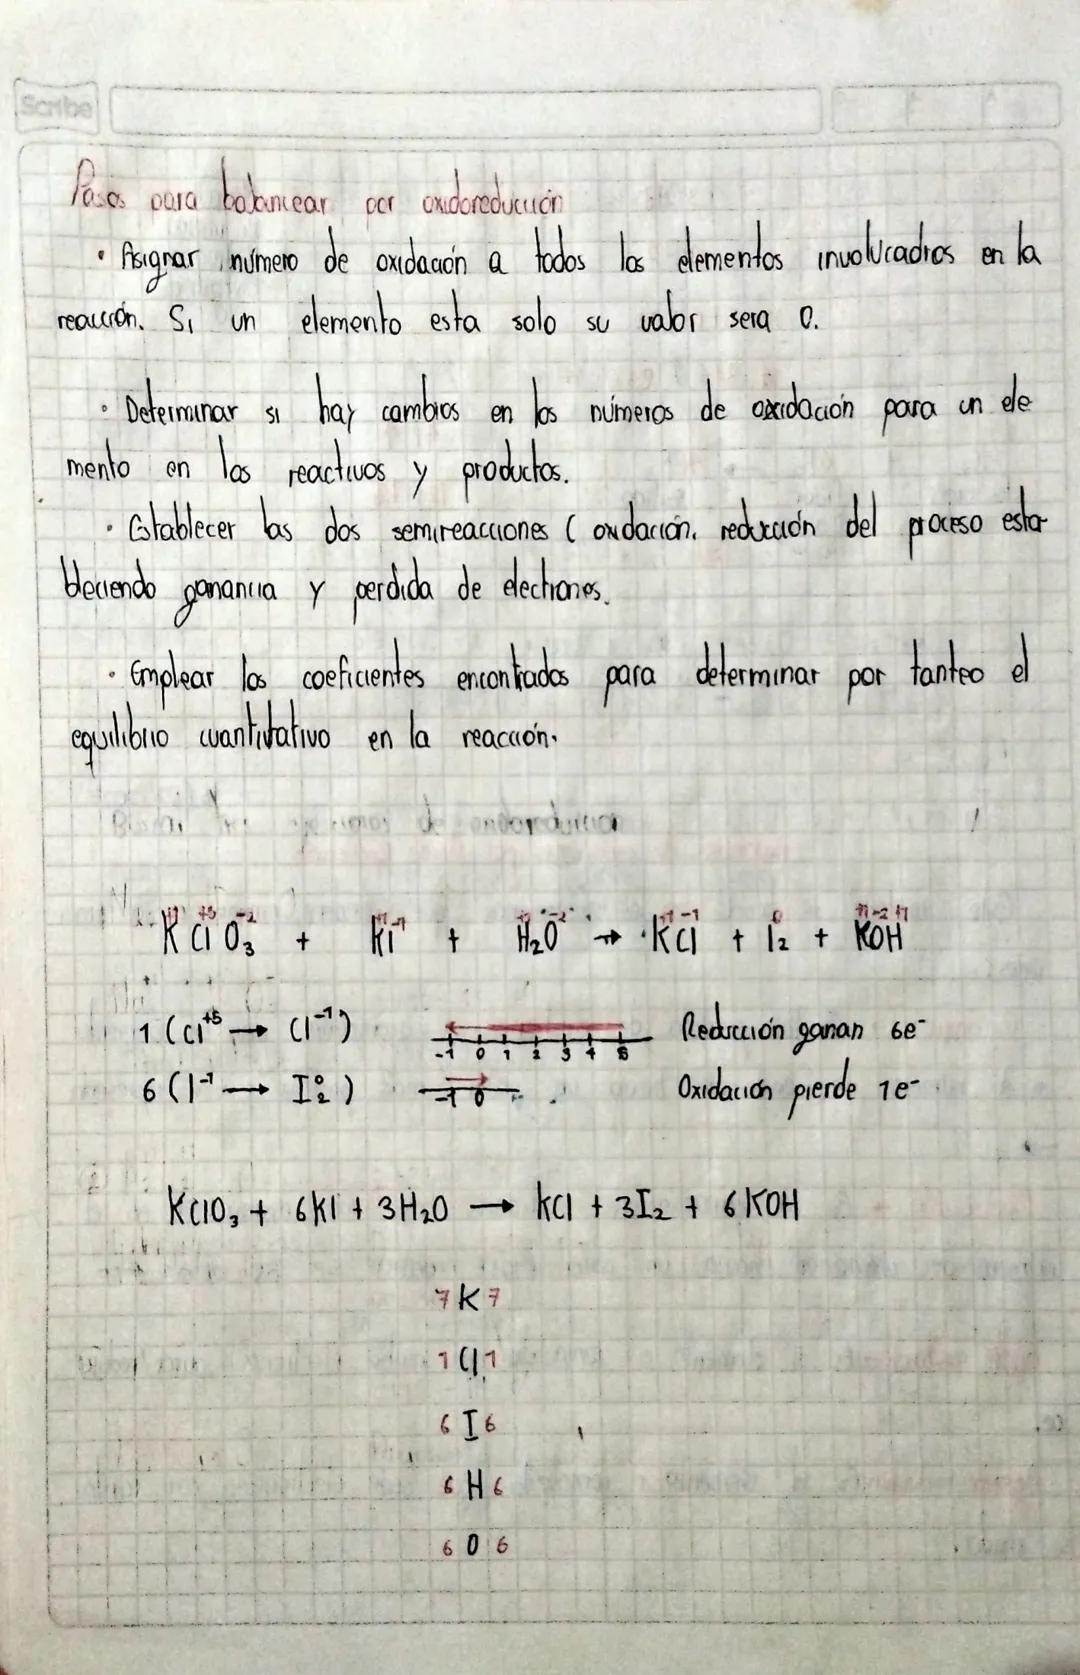 Scribe
Pasos para balancear por oxidoreducción
• Asignar número de oxidación a todos los elementos involucrados en la
reacción. Si un elemento esta solo su valor sera 0.
• Determinar si hay cambios en los números de oxidación para un ele
mento en los reactivos y productos.
• Establecer las dos semireacciones ( oxidación, reducción del proceso esta-
bleciendo ganancia y perdida de electrones.
• Emplear los coeficientes encontrados para determinar por tanteo el
equilibrio cuantitativo en la reacción.
K⁺¹Cl⁺⁵O₃⁻² + K⁺¹I⁻¹ + H₂⁺¹O⁻² → K⁺¹Cl⁻¹ + I₂⁰ + K⁺¹O⁻²H⁺¹
1 (Cl⁺⁵ → Cl⁻¹) -1 0 1 2 3 4 5 Reducción ganan 6e⁻
6 (I⁻¹ → I₂⁰) -1 0 Oxidación pierde 1e⁻
KClO₃ + 6KI + 3H₂O → KCl + 3I₂ + 6KOH
7 K 7
1 Cl 1
6 I 6
6 H 6
6 O 6